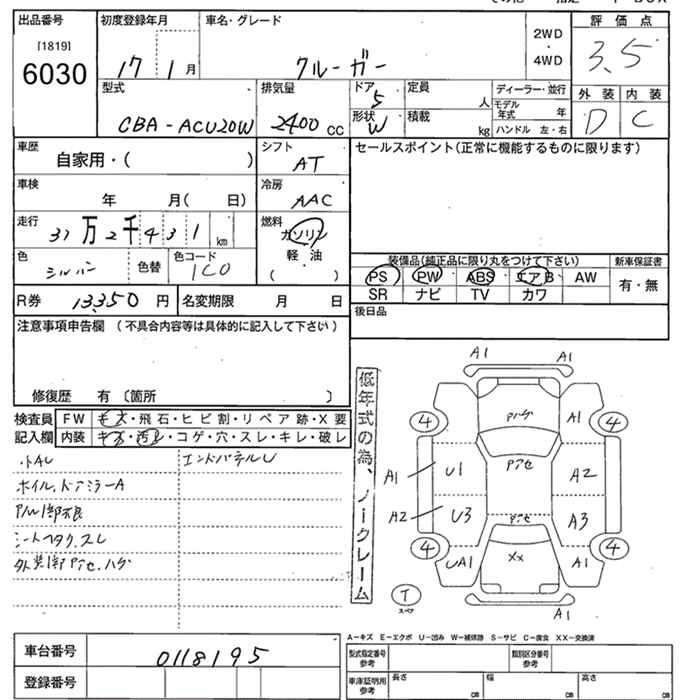 出品番号 初度登録年月 車名・グレード 2WD・4WD 評価点
[1819]
6030 17 1月 クルーガー 3.5
型式 排気量 ドア 5 定員 人 ディーラー・並行 外装 内装
CBA-ACU20W 2400cc 形状 W 積載 kg モデル年式 年 D C
ハンドル 左・右
車歴 シフト セールスポイント(正常に機能するものに限ります)
自家用・( ) AT
車検 年 月( 日) 冷房 AAC
走行 31万2千431km 燃料 ガソリン
軽油
( )
色 シルバー 色替 色コード 1C0
装備品(純正品に限り丸をつけて下さい) 新車保証書
PS PW ABS エアB AW 有・無
SR ナビ TV カワ
R券 13,350円 名変期限 月 日 後日品
注意事項申告欄(不具合内容等は具体的に記入して下さい)
修復歴 有〔箇所 〕
検査員 FW キズ・飛石・ヒビ割・リペア跡・X要
記入欄 内装 キズ・汚れ・コゲ・穴・スレ・キレ・破レ
エンドパネルU
ホイル、ドアミラーA
シートヘタク、スレ
低年式の為、ノークレーム
A1 A1
4 A1 4
A1 U1 A2
A2 U3 A3
4 UA1 XX A1 4
T A1
スペア
A-キズ E-エクボ U-凹み W-補修跡 S-サビ C-腐食 XX-交換済
車台番号 0118195
登録番号
型式指定番号 参考 類別区分番号 参考
車庫証明用 参考 長さ cm 幅 cm 高さ cm